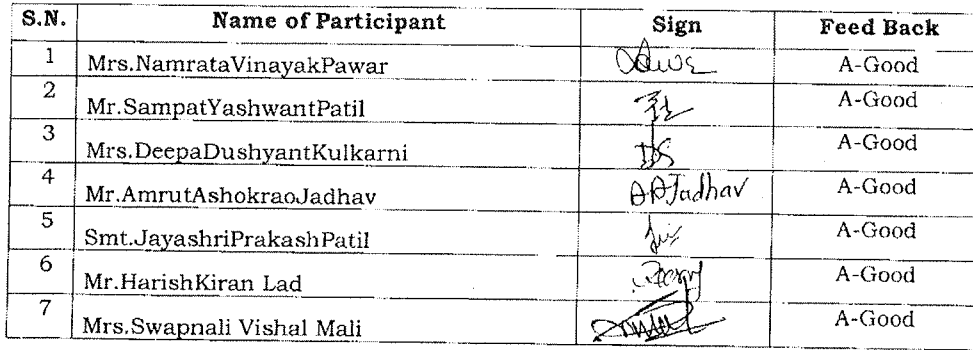 S.N. Name of Participant Sign Feed Back
1 Mrs.NamrataVinayakPawar A-Good
2 Mr.SampatYashwantPatil A-Good
3 Mrs.DeepaDushyantKulkarni A-Good
4 Mr.AmrutAshokraoJadhav A.A.Jadhav A-Good
5 Smt.JayashriPrakashPatil A-Good
6 Mr.HarishKiran Lad A-Good
7 Mrs.Swapnali Vishal Mali A-Good